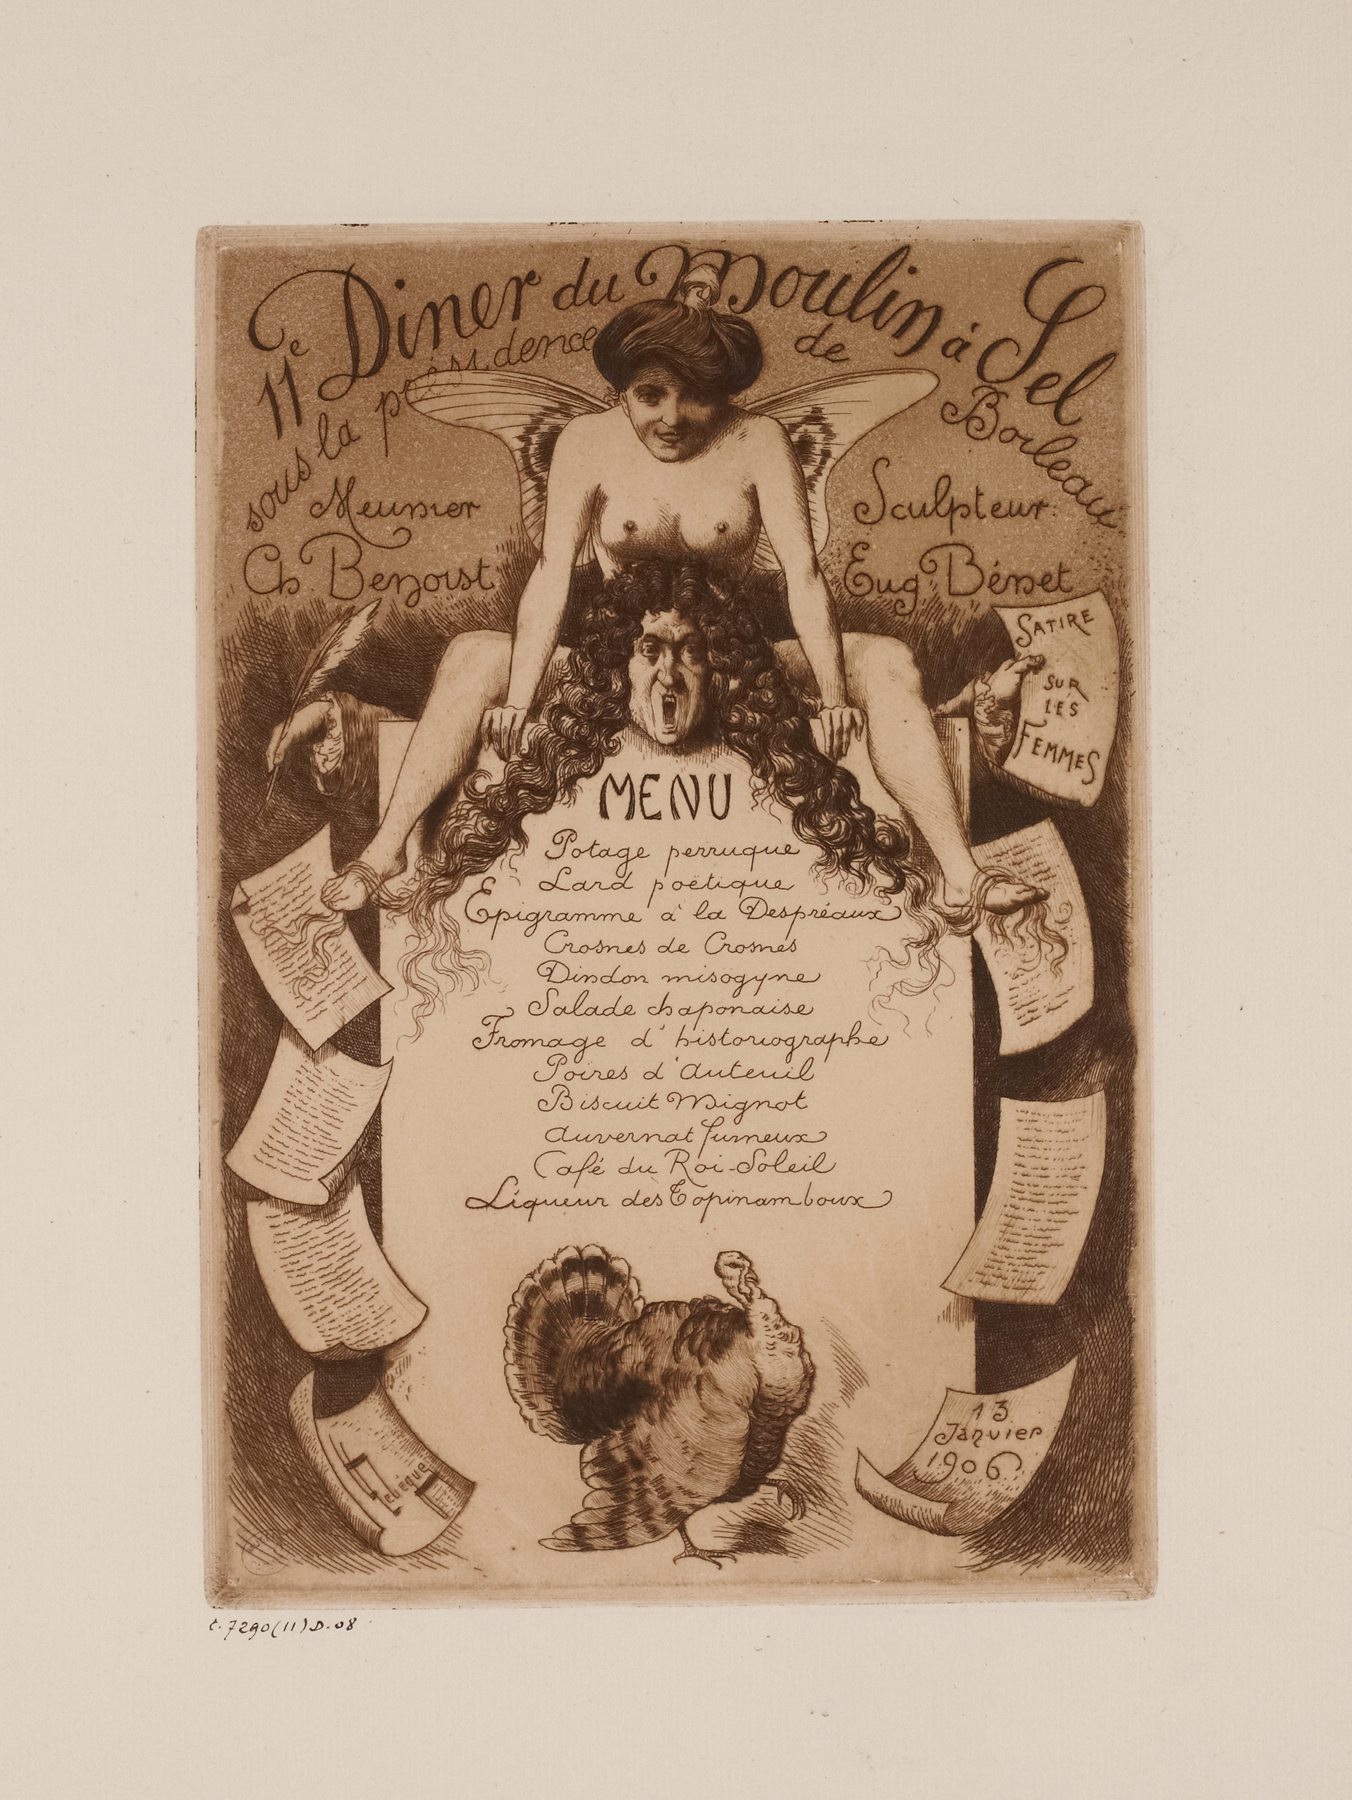 11e Diner du Moulin à Sel
sous la présidence de Boileau
Meunier
Ch. Benoist
Sculpteur:
Eug Bénet
SATIRE
SUR
LES
FEMMES
MENU
Potage perruque
Lard poëtique
Epigramme à la Despréaux
Crosnes de Crosnes
Dindon misogyne
Salade chaponaise
Fromage d'historiographe
Poires d'Auteuil
Biscuit Mignot
Auvernat fumeux
Café du Roi-Soleil
Liqueur des Topinamboux
13
Janvier
1906
C.7290(11)D.08